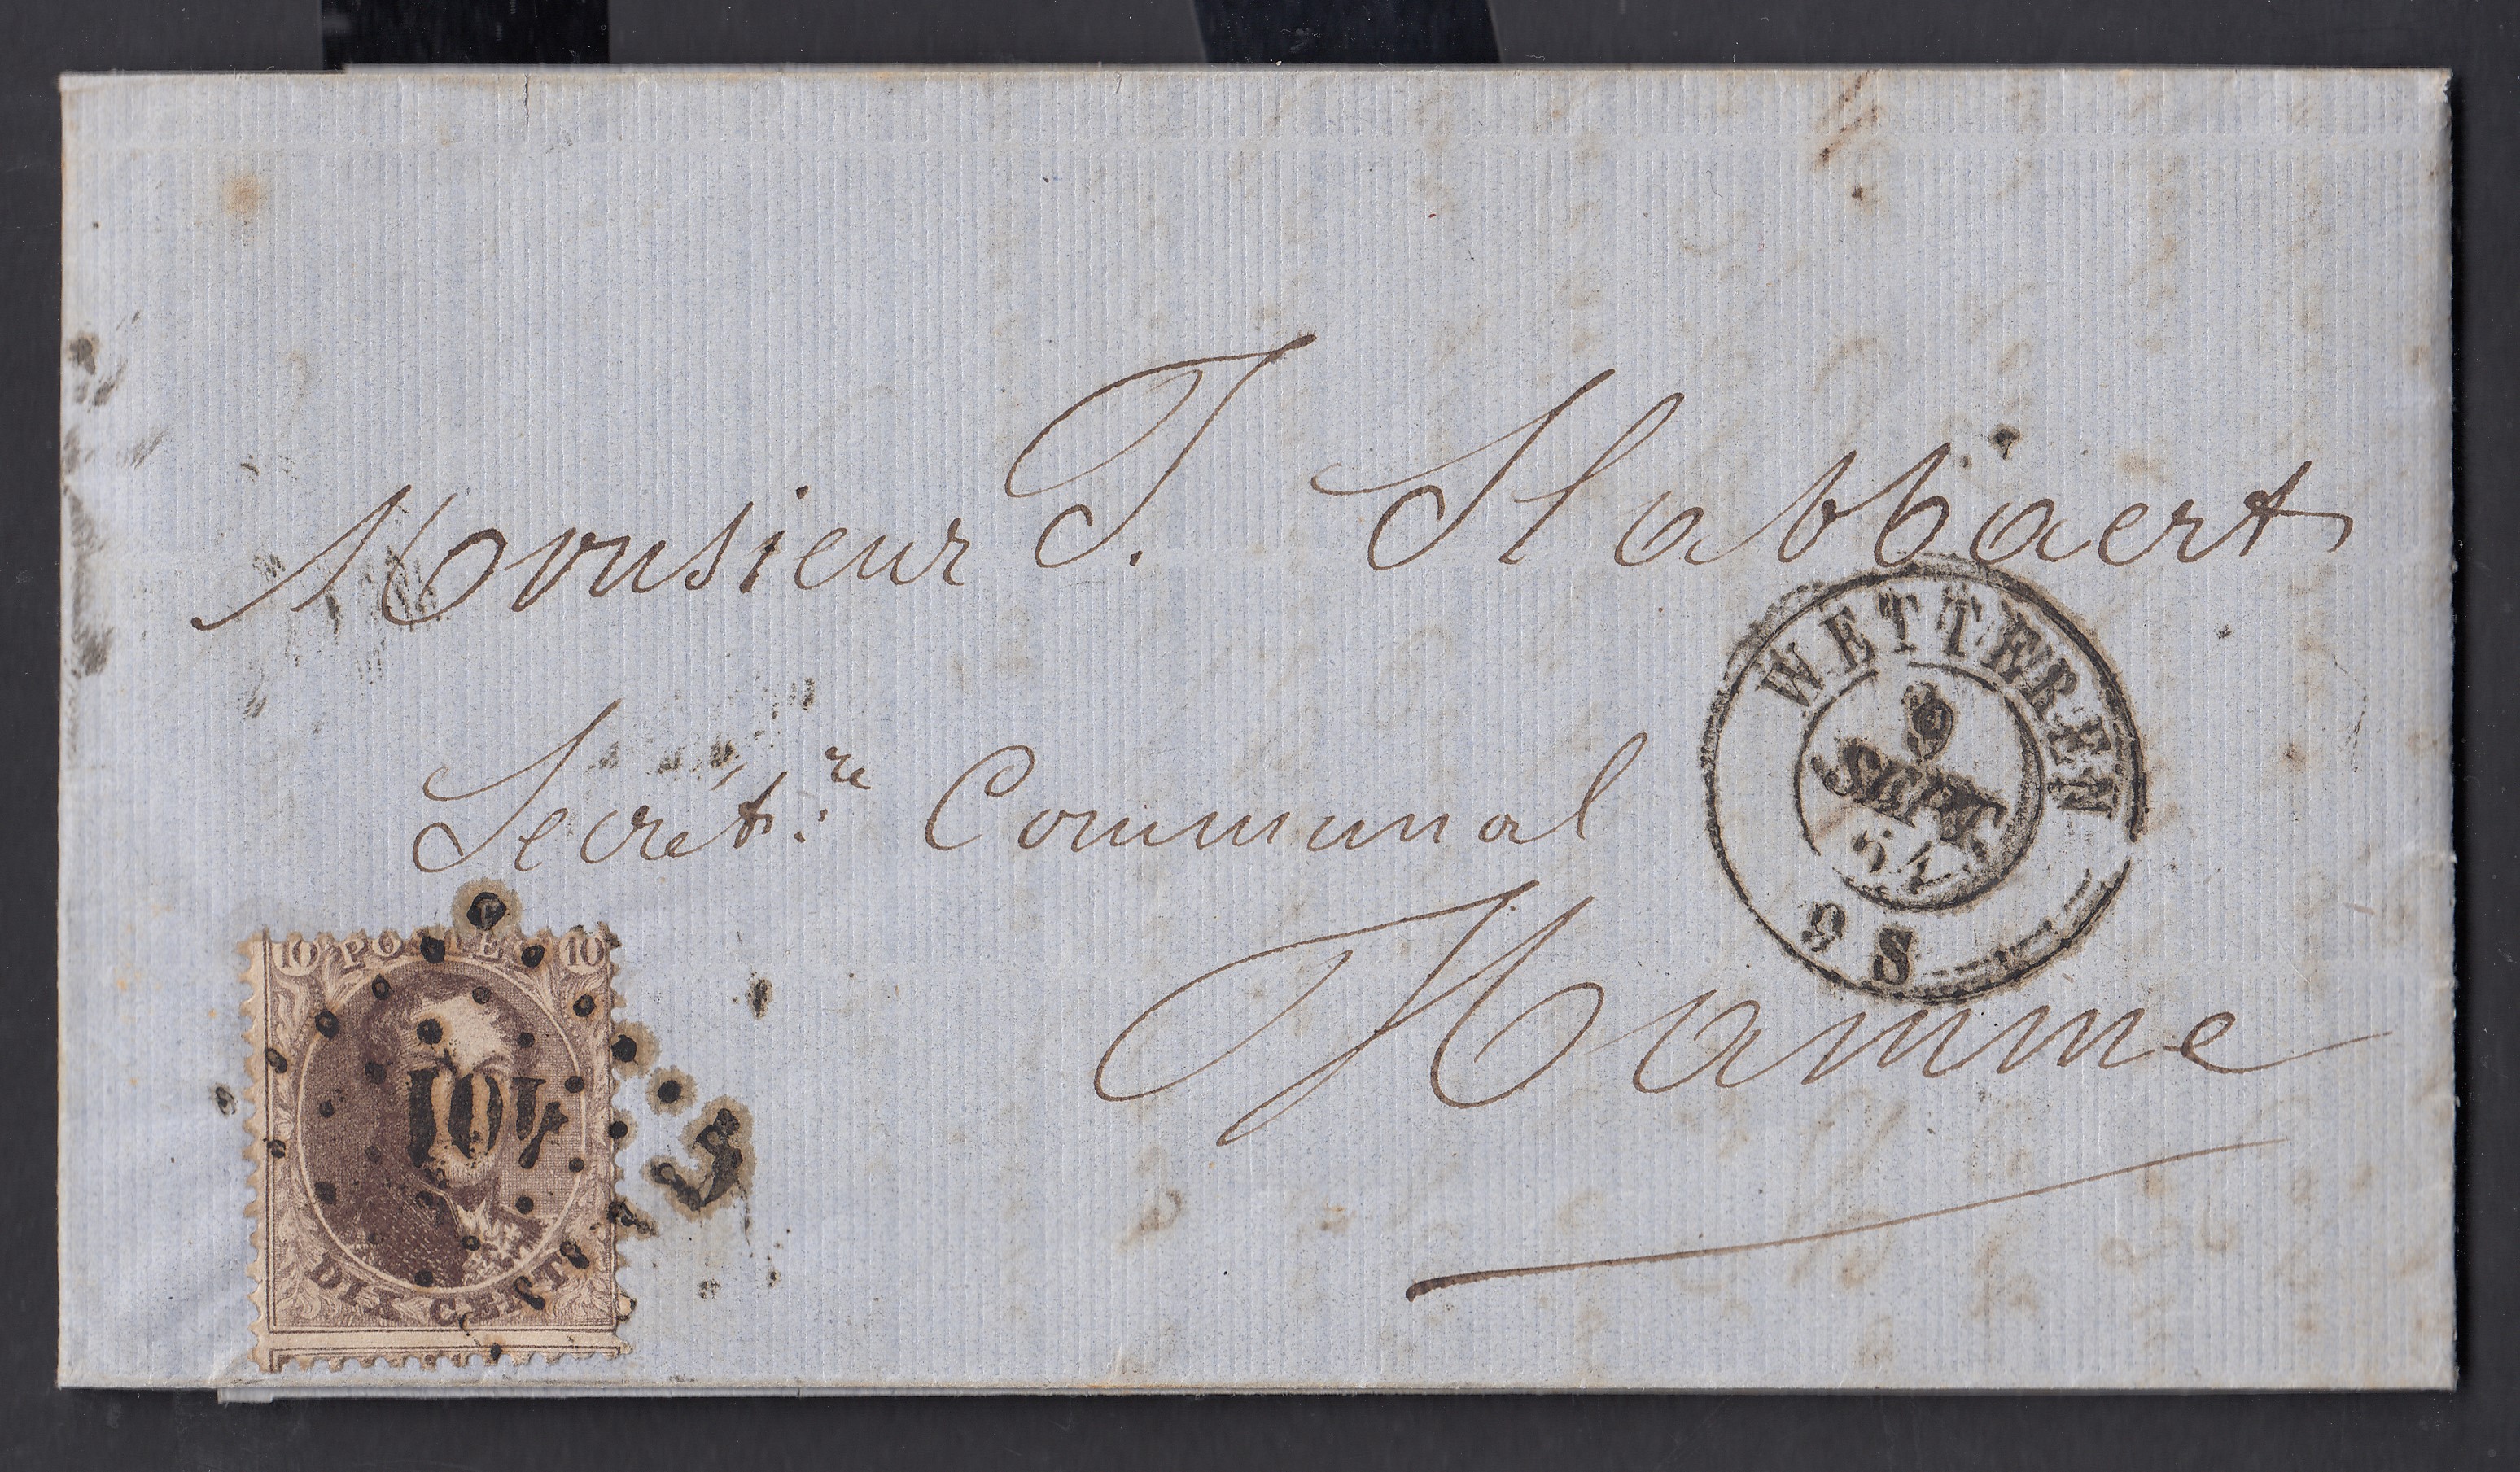 Monsieur T. Slabbaert
Secrét.re Communal
Hamme
WETTEREN
9
SEPT
64
9 S
10 POSTES 10
104
DIX CENTS